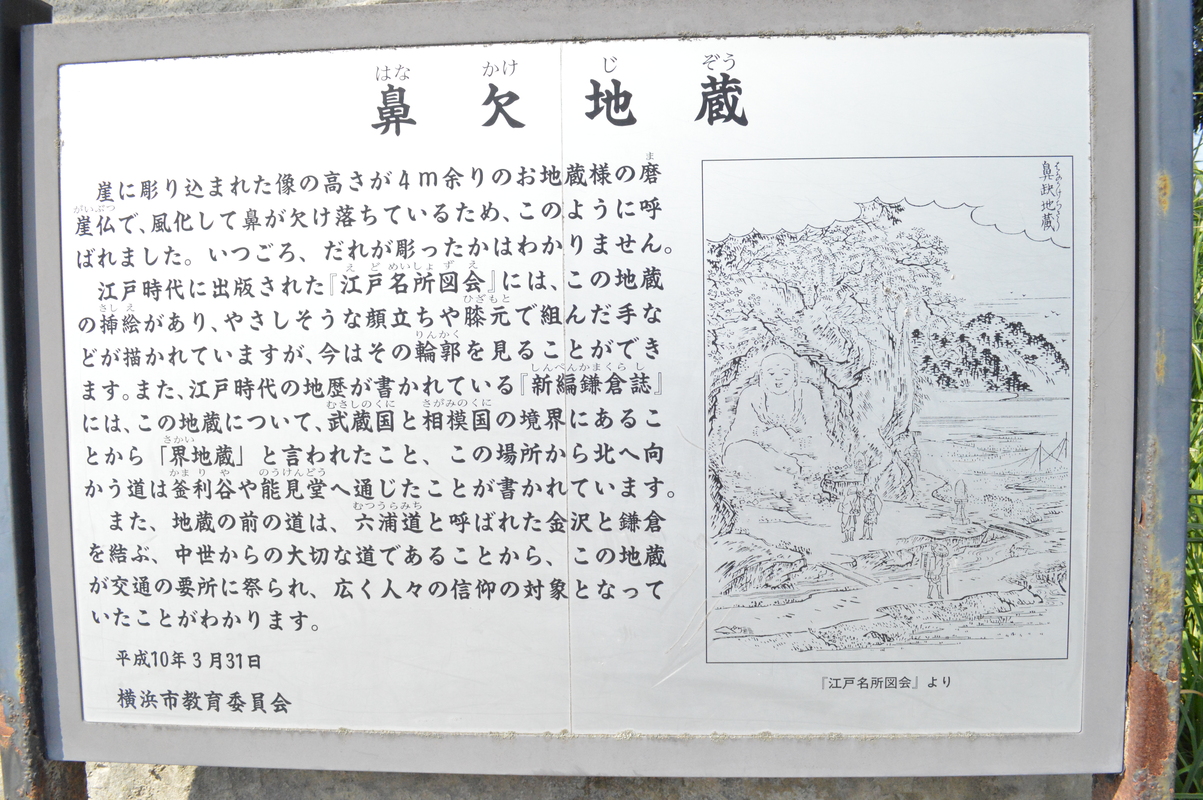 鼻欠地蔵
はな かけ じ ぞう
崖に彫り込まれた像の高さが4m余りのお地蔵様の磨
崖仏で、風化して鼻が欠け落ちているため、このように呼
ばれました。いつごろ、だれが彫ったかはわかりません。
江戸時代に出版された『江戸名所図会』には、この地蔵
の挿絵があり、やさしそうな顔立ちや膝元で組んだ手な
どが描かれていますが、今はその輪郭を見ることができ
ます。また、江戸時代の地歴が書かれている『新編鎌倉誌』
には、この地蔵について、武蔵国と相模国の境界にあるこ
とから「界地蔵」と言われたこと、この場所から北へ向
かう道は釜利谷や能見堂へ通じたことが書かれています。
また、地蔵の前の道は、六浦道と呼ばれた金沢と鎌倉
を結ぶ、中世からの大切な道であることから、この地蔵
が交通の要所に祭られ、広く人々の信仰の対象となって
いたことがわかります。
平成10年3月31日
横浜市教育委員会
『江戸名所図会』より